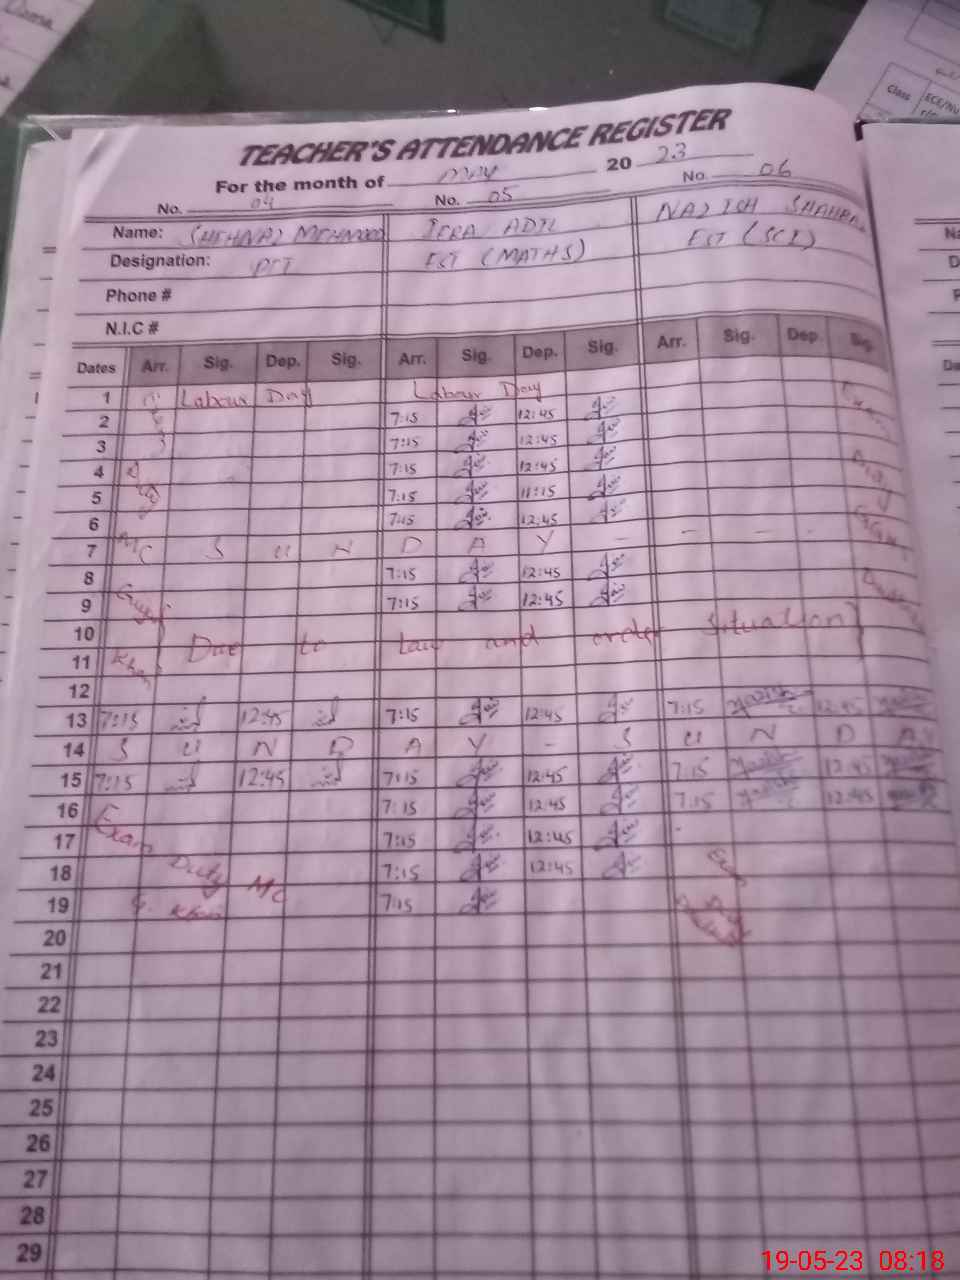 Class
TEACHER'S ATTENDANCE REGISTER
For the month of May 20 23
No. 04 No. 05 No. 06
Name: SHEHNAZ MEHMOOD IERA ADIL NAZISH SHAHEEN
Designation: PET EST (MATHS) EST (SCI)
Phone #
N.I.C #
Dates Arr. Sig. Dep. Sig. Arr. Sig. Dep. Sig. Arr. Sig. Dep. Sig.
1 Labour Day Labour Day
2 7:15 12:45
3 7:15 12:45
4 Duty 7:15 12:45
5 7:15 11:15
6 7:15 12:45
7 MC S U N D A Y - - - -
8 7:15 12:45
9 7:15 12:45
10 Due to law and order situation
11 Khan
12
13 7:15 12:45 7:15 12:45 7:15 12:45
14 S U N D A Y - S U N D A Y
15 7:15 12:45 7:15 12:45 7:15 12:45
16 7:15 12:45 7:15 12:45
17 Exam 7:15 12:45
18 Duty MC 7:15 12:45
19 G. Khan 7:15
20
21
22
23
24
25
26
27
28
29
19-05-23 08:18